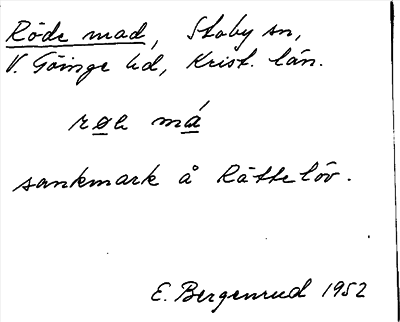 Röde mad, Stoby sn,
V. Göinge hd, Krist. län.
røe má
sankmark å Rättelöv.
E. Bergenrud 1952